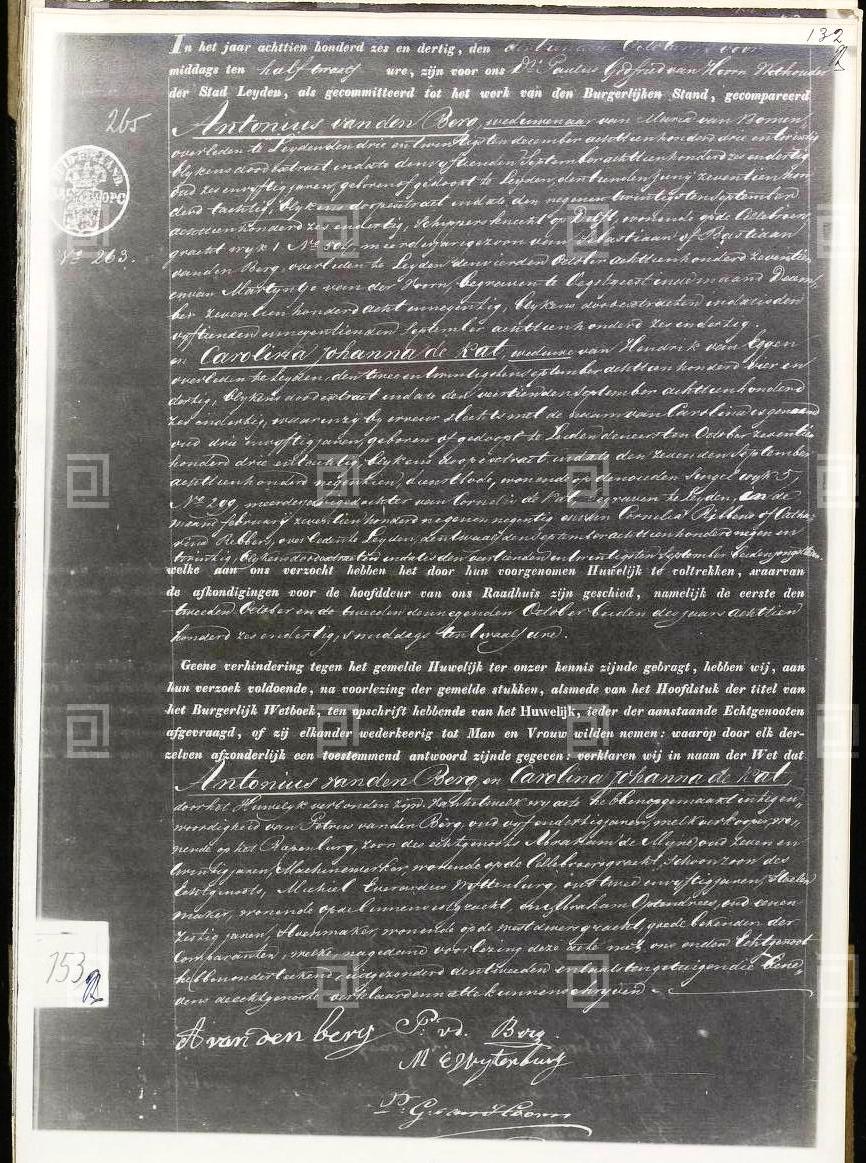 132
In het jaar achttien honderd zes en dertig, den October voor
middags ten half twaalf ure, zijn voor ons Dr. Paulus Godfried van Hoorn Wethouder
der Stad Leyden, als gecommitteerd tot het werk van den Burgerlijken Stand, gecompareerd
265
Antonius van den Berg, weduwenaar van Maria van Bomen,
overleden te Leyden den drie en twintigsten december achttienhonderd drie en twintig
blykens doodextract in dato den vyftienden September achttienhonderd zes en dertig
oud zes en vyftig jaren, geboren of gedoopt te Leyden, den tienden Juny zeventienhon
derd tachtig, blykens doopextract in dato den negen en twintigsten September
achttienhonderd zes en dertig, Schippersknecht op Delft, wonende op de Cellebroers
gracht wyk 1 No. meerderjarige zoon van Sebastiaan of Bastiaan
No 263.
van den Berg, overleden te Leyden den vierden October achttienhonderd zeventien
en van Martyntje van der Hoorn, begraven te Oegstgeest in de maand Decem
ber zeventienhonderd acht en negentig, blykens doodextracten in datis den
vyftienden en negentienden September achttienhonderd zes en dertig;
en Carolina Johanna de Kat, weduwe van Hendrik van Eggen
overleden te Leyden, den twee en twintigsten September achttienhonderd vier en
dertig, blykens doodextract in dato den veertienden September achttienhonderd
zes en dertig, waarin zy by erreur slechts met de naam van Carolina is genaamd
oud drie en vyftig jaren, geboren of gedoopt te Leiden den eersten October zeventien
honderd drie en tachtig, blykens doopextract in dato den zevenden September
achttienhonderd negentien, dienstbode, wonende op den ouden Singel wyk 5
No 299, meerderjarige dochter van Cornelis de Kat, begraven te Leyden, in de
maand february zeventienhonderd negen en negentig en van Cornelia Ribbens of Catha-
rina Rebbers, overleden te Leyden, den twaalfden September achttienhonderd negen en
twintig, blykens doodextracten in datis den veertienden en twintigsten September
welke aan ons verzocht hebben het door hun voorgenomen Huwelijk te voltrekken, waarvan
de afkondigingen voor de hoofddeur van ons Raadhuis zijn geschied, namelijk de eerste den
tweeden October en de tweede den negenden October beiden des jaars achttien
honderd zes en dertig, s middags ten twaalf ure.
Geene verhindering tegen het gemelde Huwelijk ter onzer kennis zijnde gebragt, hebben wij, aan
hun verzoek voldoende, na voorlezing der gemelde stukken, alsmede van het Hoofdstuk der titel van
het Burgerlijk Wetboek, ten opschrift hebbende van het Huwelijk, ieder der aanstaande Echtgenooten
afgevraagd, of zij elkander wederkeerig tot Man en Vrouw wilden nemen: waarop door elk der-
zelven afzonderlijk een toestemmend antwoord zijnde gegeven: verklaren wij in naam der Wet dat
Antonius van den Berg en Carolina Johanna de Kat
door het Huwelyk verbonden zyn. Van hetwelk wy acte hebben opgemaakt in tegen-
woordigheid van Petrus van den Berg, oud vyf en dertig jaren, melkverkooper, wo-
nende op het Rapenburg, zoon des echtgenoots Abraham de Mynd, oud zeven en
twintig jaren, Machinewerker, wonende op de Cellebroersgracht, Schoonzoon des
Echtgenoots, Michiel Everardus Wyttenburg, oud twee en vyftig jaren, Stoelen
maker, wonende op de binnenvestgracht, en Abraham Optendrees, oud zeven en
zestig jaren, Schoenmaker, wonende op de mestdwarsgracht, goede bekenden der
Comparanten, welke na gedane voorlezing deze acte met ons en den Echtgenoot
hebben onderteekend uitgezonderd den tweeden en laatsten getuigen die bene-
vens de echtgenote verklaarden niet te kunnen schryven
153
A van den berg P. vd. Berg
M E Wyttenburg
Dr. G. van Hoorn